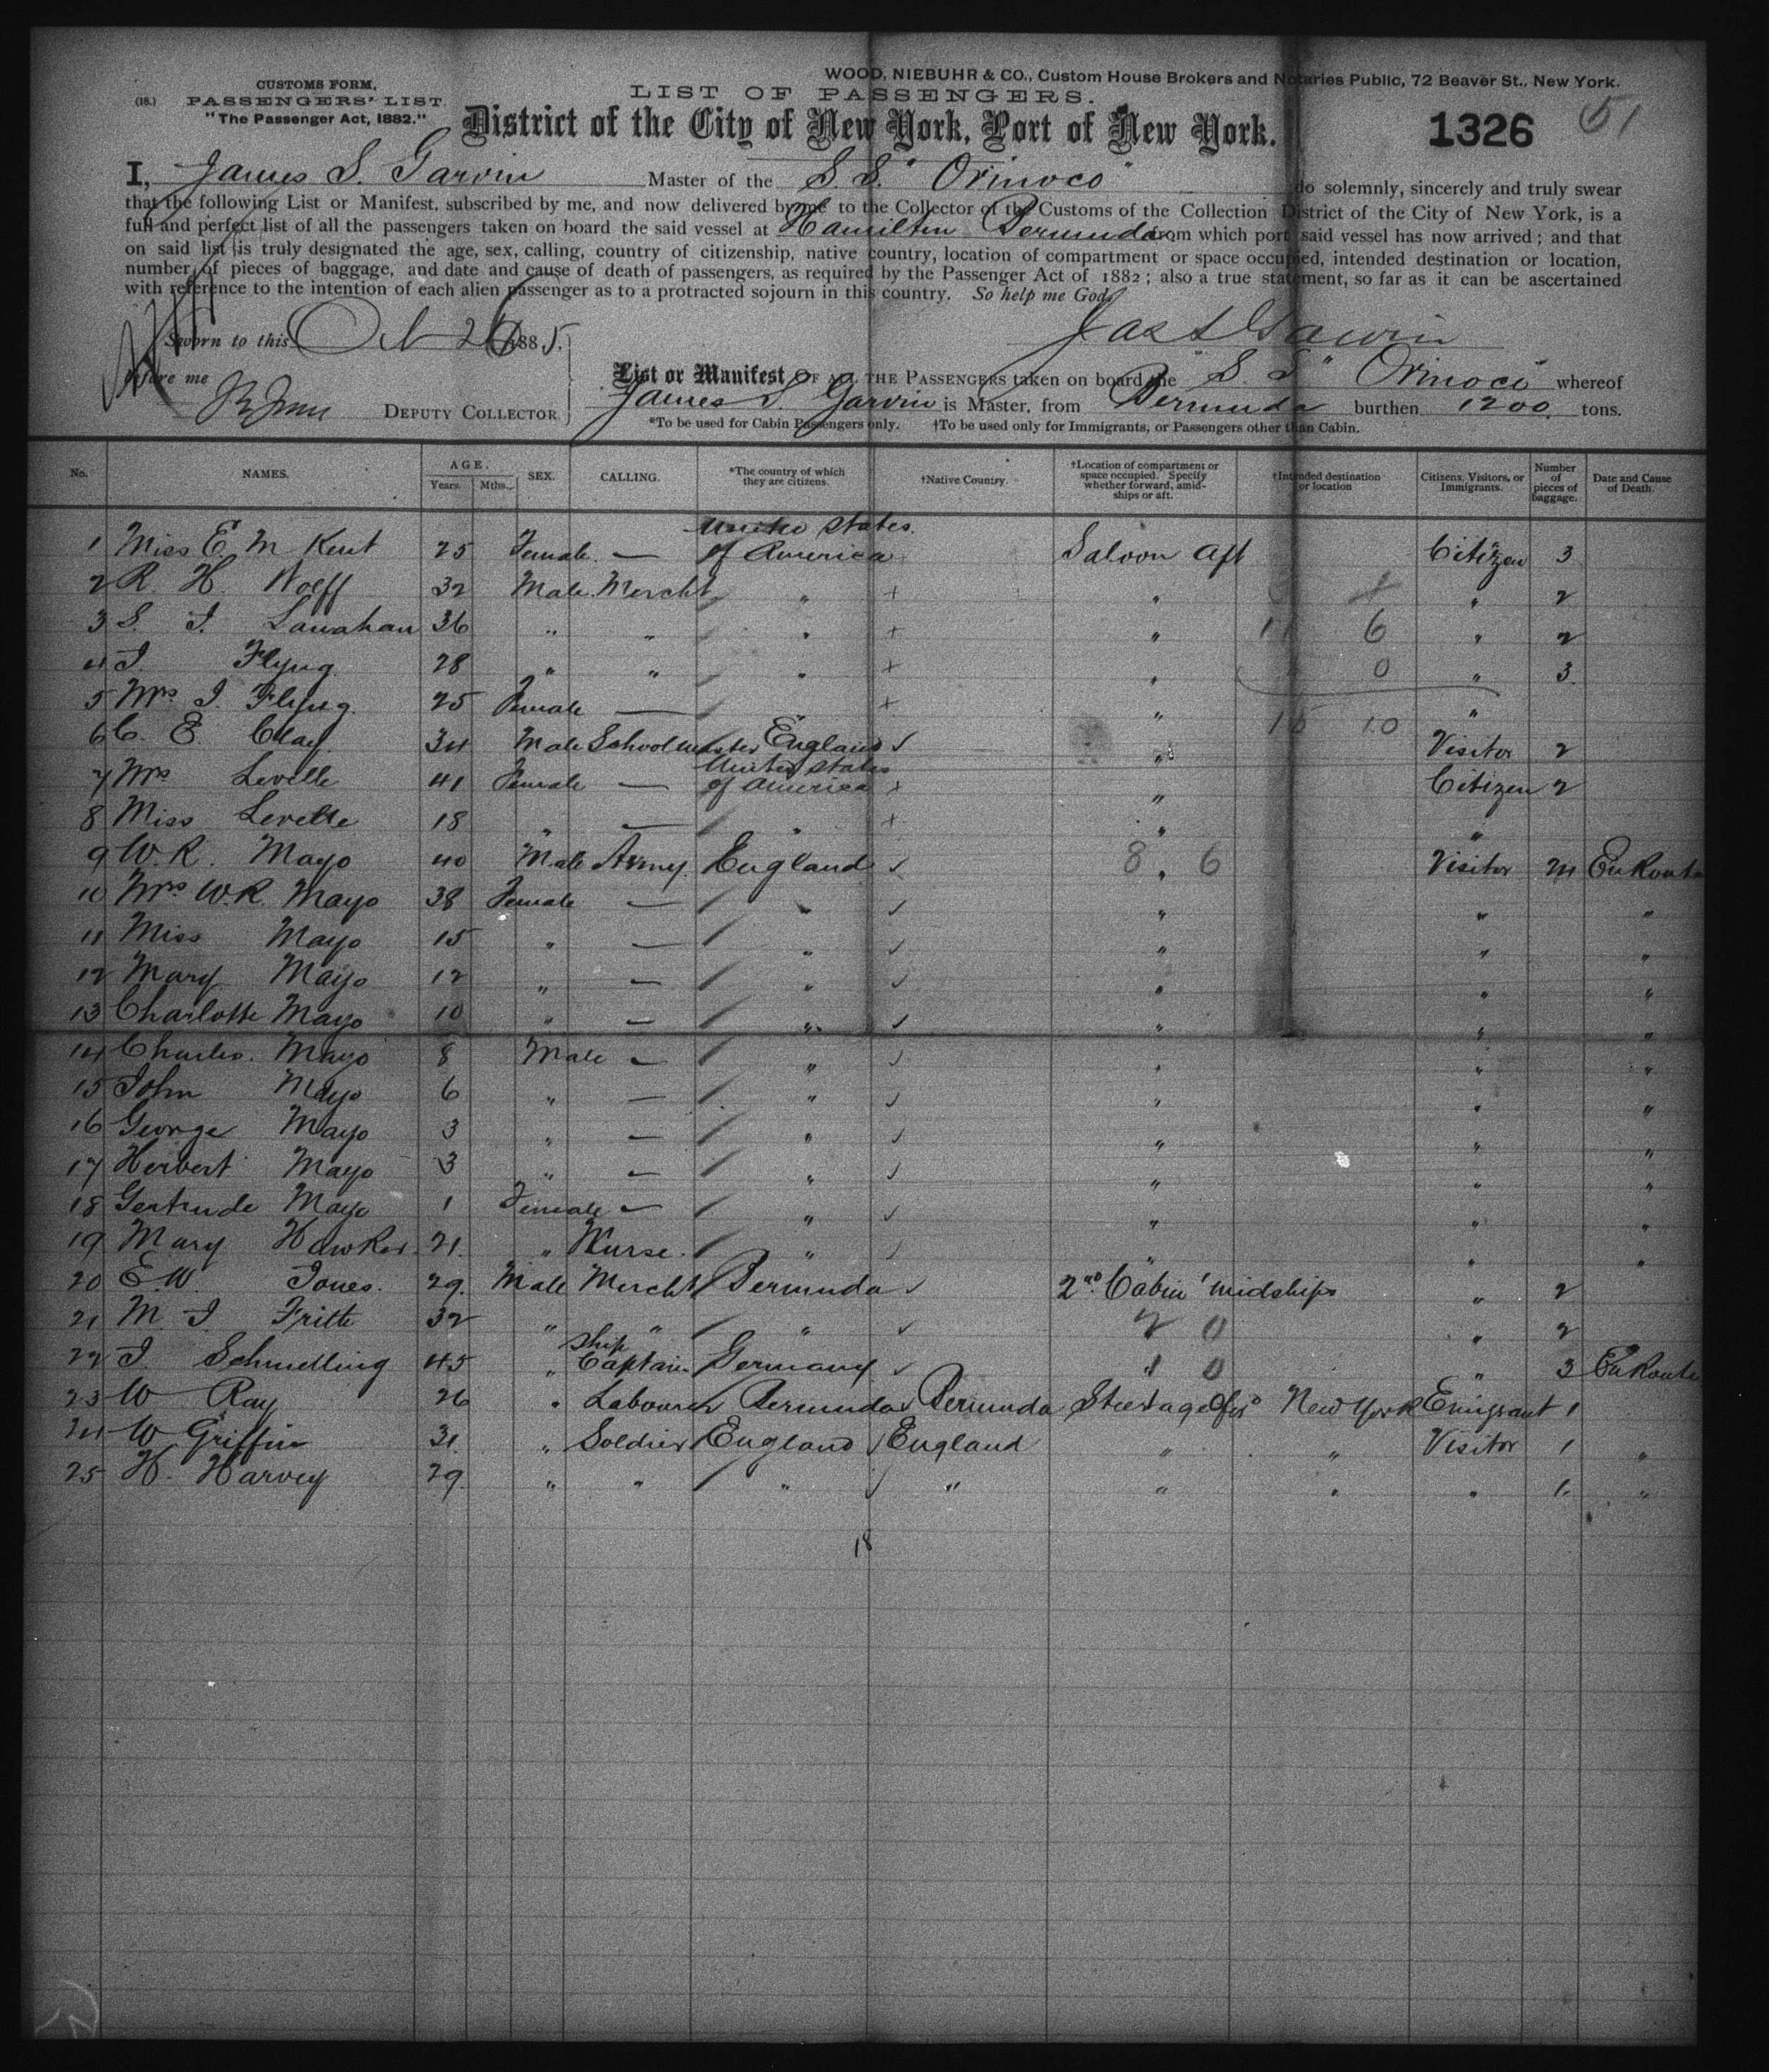 WOOD, NIEBUHR & CO., Custom House Brokers and Notaries Public, 72 Beaver St., New York.
CUSTOMS FORM,
(18.) PASSENGERS' LIST.
"The Passenger Act, 1882."
LIST OF PASSENGERS.
District of the City of New York, Port of New York.
1326 51
I, James S. Garvin Master of the S.S. "Orinoco" do solemnly, sincerely and truly swear
that the following List or Manifest, subscribed by me, and now delivered by me to the Collector of the Customs of the Collection District of the City of New York, is a
full and perfect list of all the passengers taken on board the said vessel at Hamilton Bermuda from which port said vessel has now arrived; and that
on said list is truly designated the age, sex, calling, country of citizenship, native country, location of compartment or space occupied, intended destination or location,
number of pieces of baggage, and date and cause of death of passengers, as required by the Passenger Act of 1882; also a true statement, so far as it can be ascertained
with reference to the intention of each alien passenger as to a protracted sojourn in this country. So help me God.
Jas S Garvin
Sworn to this Oct 26 1885.
before me
DEPUTY COLLECTOR
List or Manifest OF ALL THE PASSENGERS taken on board the "S. S" Orinoco whereof
James S. Garvin is Master, from Bermuda burthen 1200 tons.
*To be used for Cabin Passengers only. †To be used only for Immigrants, or Passengers other than Cabin.
No. NAMES. AGE. Years. Mths. SEX. CALLING. *The country of which they are citizens. †Native Country. †Location of compartment or space occupied. Specify whether forward, amidships or aft. †Intended destination or location Citizens, Visitors, or Immigrants. Number of pieces of baggage. Date and Cause of Death.
1 Miss E. M Kent 25 Female — United States of America Saloon Aft Citizen 3
2 R. H. Wolff 32 Male Mercht " + " " 2
3 S. J. Lanahan 36 " " " + " 11 6 " 2
4 J. Flyng 28 " " " + " 0 " 3
5 Mrs J. Flyng 25 Female — " + " 15 10 "
6 C. E. Clay 34 Male Schoolmaster England ✓ " Visitor 2
7 Mrs Levelle 41 Female — United States of America + " Citizen 2
8 Miss Levelle 18 " — " + " "
9 W. R. Mayo 40 Male Army England ✓ 8 " 6 Visitor 14 En Route
10 Mrs W. R. Mayo 38 Female — " ✓ " " "
11 Miss Mayo 15 " — " ✓ " " "
12 Mary Mayo 12 " — " ✓ " " "
13 Charlotte Mayo 10 " — " ✓ " " "
14 Charles. Mayo 8 Male — " ✓ " " "
15 John Mayo 6 " — " ✓ " " "
16 George Mayo 3 " — " ✓ " " "
17 Herbert Mayo 3 " — " ✓ " " "
18 Gertrude Mayo 1 Female — " ✓ " " "
19 Mary Hawker 21. " Nurse. " ✓ " " "
20 E. W. Jones. 29. Male Mercht Bermuda ✓ 2nd Cabin 'midships " 2
21 M. J. Frith 32 " " " ✓ 2 0 " 2
22 J. Schmelling 45 " Ship Captain Germany ✓ 1 0 " 3 En Route
23 W Ray 26 " Labourer Bermuda Bermuda Steerage New York Emigrant 1
24 W Griffin 31. " Soldier England ✓ England " " Visitor 1 "
25 H. Harvey 29. " " " ✓ " " " " 1. "
18